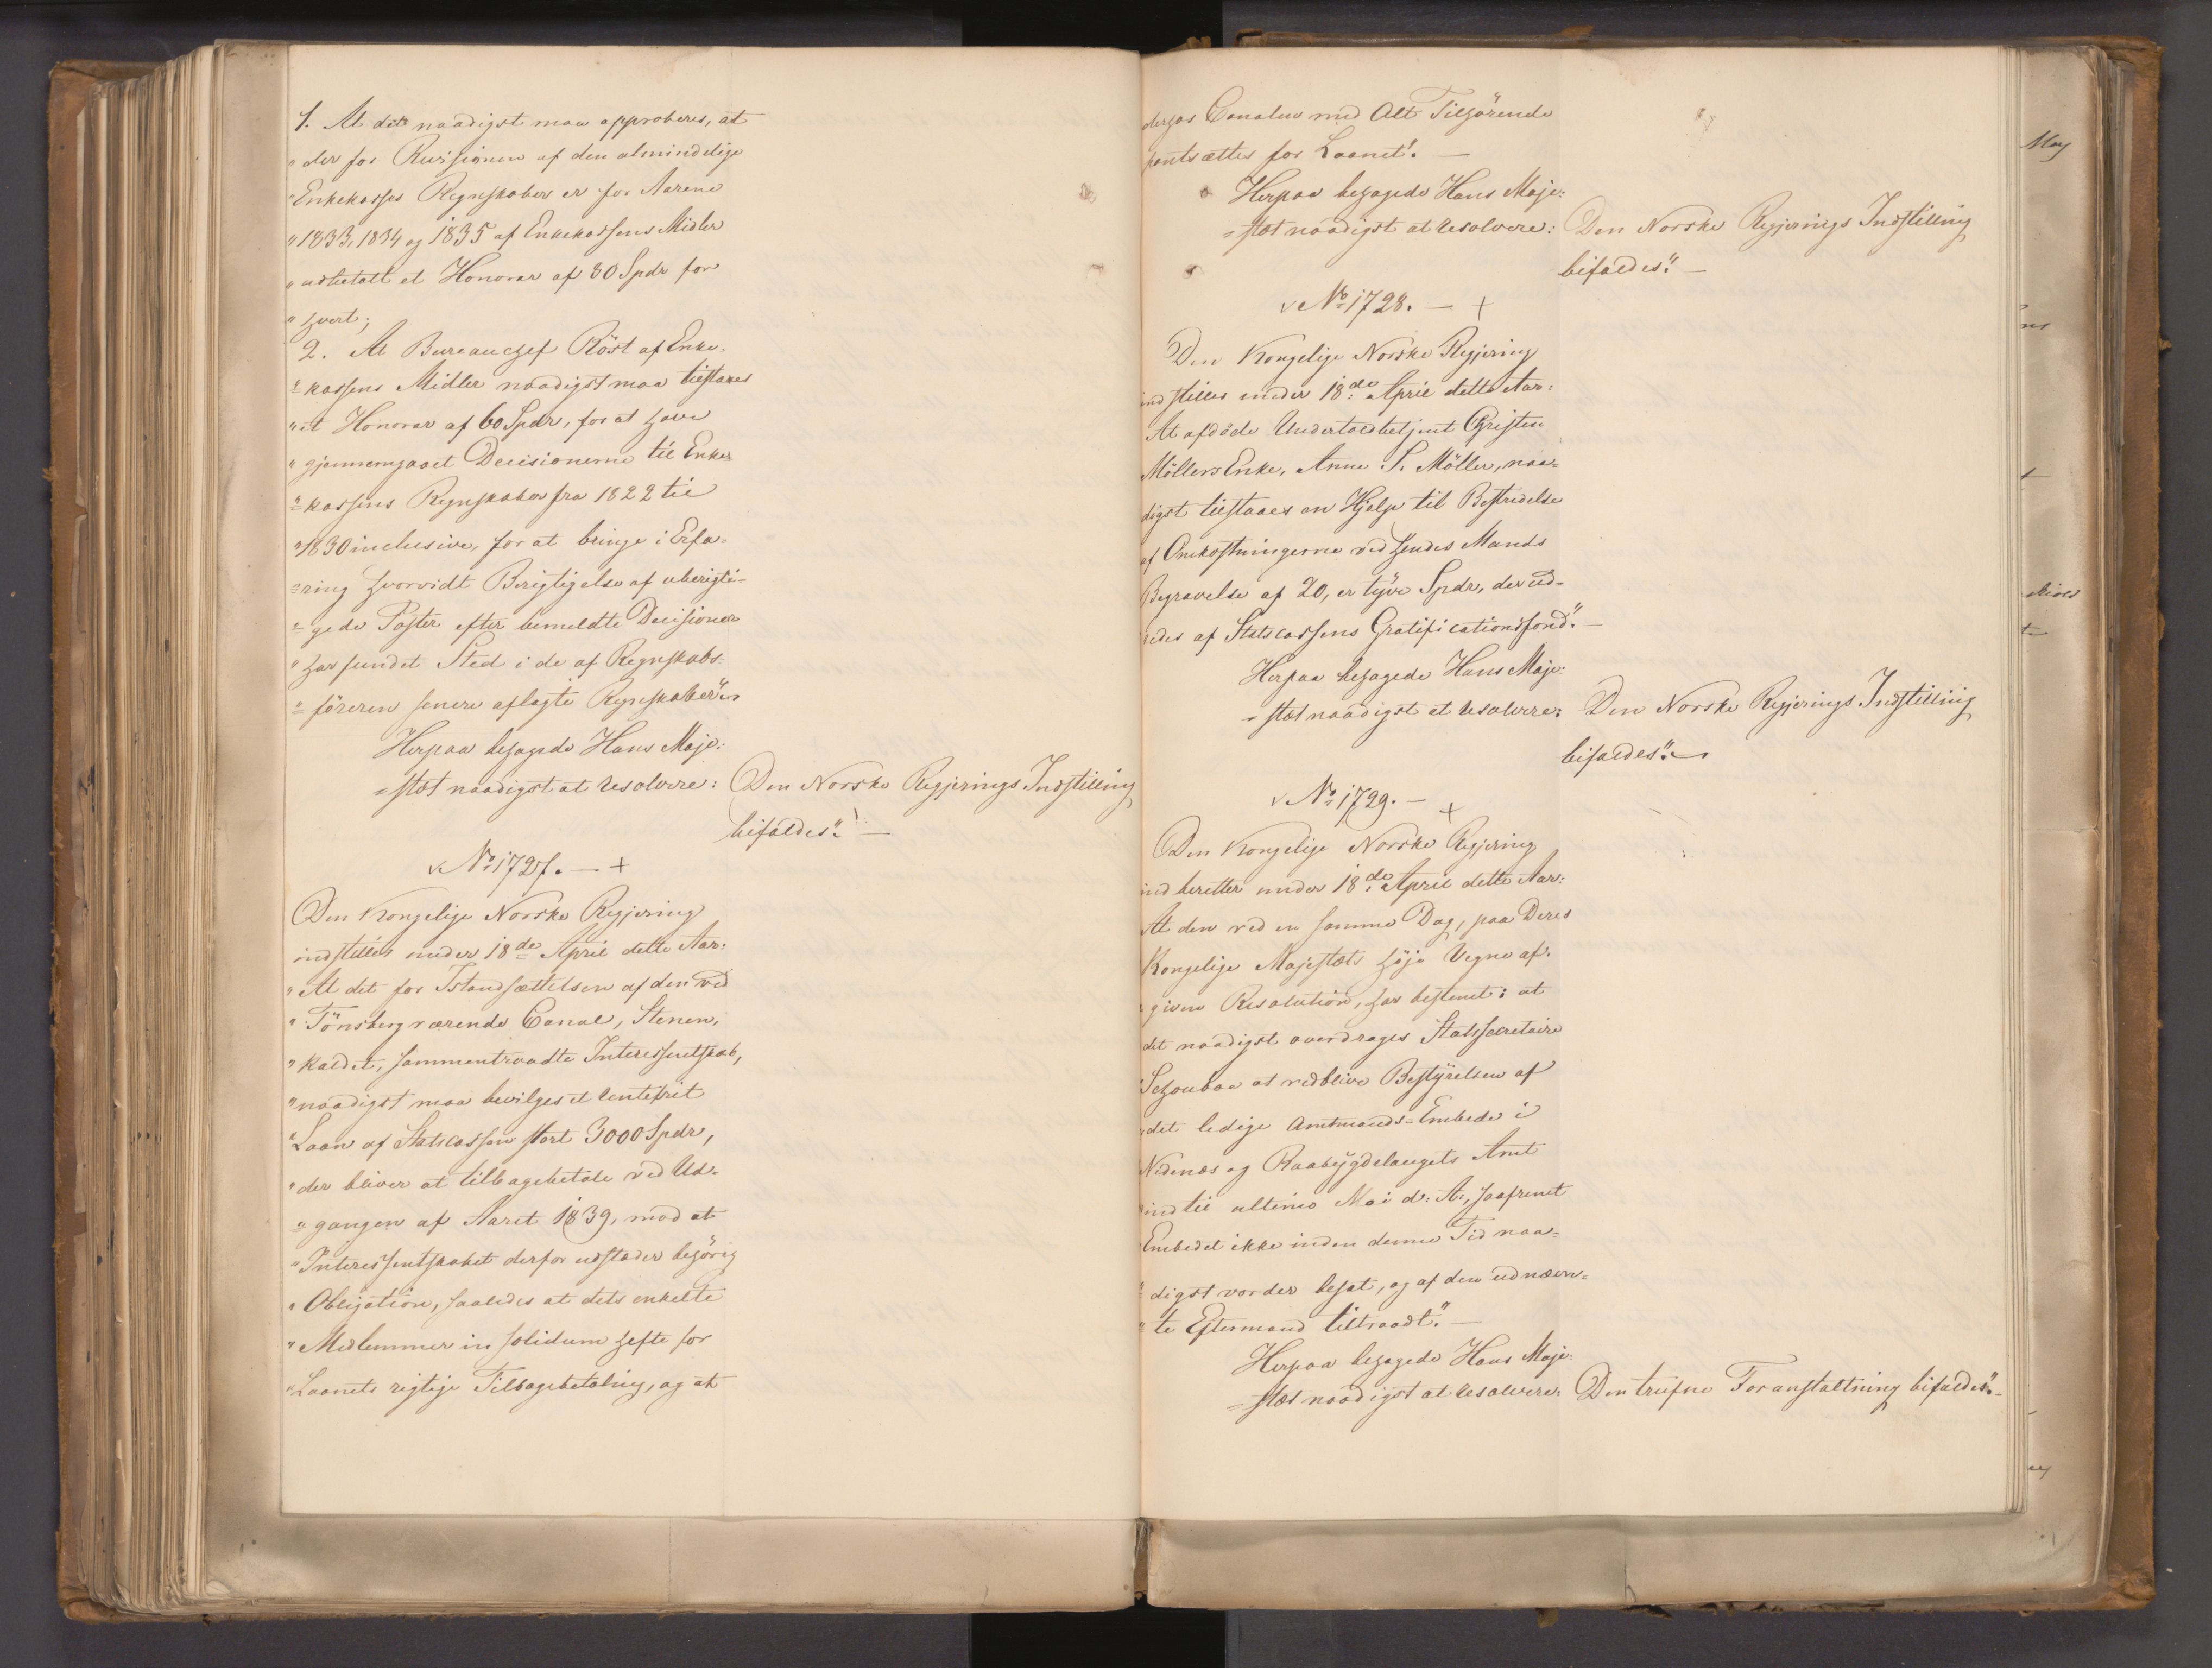 1. At det naadigst maa approberes, at
" der for Revisionen af den almindelige
" Enkekasses Regnskaber er for Aarene
" 1833, 1834 og 1835 af Enkekassens Midler
" udbetalt et Honorar af 30 Spdr for
" hvert;
2. At Bureauchef Röst af Enke-
"=kassens Midler naadigst maa tilstaaes
" et Honorar af 60 Spdr, for at have
" gjennemgaaet Decisionerne til Enke-
"=kassens Regnskaber fra 1822 til
" 1830 inclusive, for at bringe i Erfa-
"=ring hvorvidt Berigtigelse af uberigti-
"=gede Poster efter bemeldte Decisioner
" har fundet Sted i de af Regnskabs-
"=föreren senere aflagte Regnskaber".
Herpaa behagede Hans Maje-
=stæt naadigst at resolvere: Den Norske Regjerings Indstilling
bifaldes". —
No 1727. — +
Den Kongelige Norske Regjering
indstiller under 18de April dette Aar:
" At det for Istandsættelsen af den ved
" Tönsberg værende Canal, Stenen,
" kaldet, sammentraadte Interessentskab,
" naadigst maa bevilges et rentefrit
" Laan af Statscassen stort 3000 Spdr,
" der bliver at tilbagebetale ved Ud-
"=gangen af Aaret 1839, mod at
" Interessentskabet derfor udsteder behörig
" Obligation, saaledes at dets enkelte
" Medlemmer in solidum hefte for
" Laanets rigtige Tilbagebetaling, og at
derhos Canalen med Alt Tilhörende
pantsættes for Laanet". —
Herpaa behagede Hans Maje-
=stæt naadigst at resolvere: Den Norske Regjerings Indstilling
bifaldes". —
No 1728. — +
Den Kongelige Norske Regjering
indstiller under 18de April dette Aar:
At afdöde Undertoldbetjent Christen
Möllers Enke, Anne S. Möller, naa-
digst tilstaaes en Hjelp til Bestridelse
af Omkostningerne ved hendes Mands
Begravelse af 20, er tyve Spdr, der ud-
redes af Statscassens Gratificationsfond". —
Herpaa behagede Hans Maje-
=stæt naadigst at resolvere: Den Norske Regjerings Indstilling
bifaldes". —
No 1729. — +
Den Kongelige Norske Regjering
indberetter under 18de April dette Aar:
At den ved en samme Dag, paa Deres
Kongelige Majestæts höje Vegne af-
given Resolution, har bestemt: at
det naadigst overdrages Statssecretaire
Schouboe at vedblive Bestyrelsen af
det ledige Amtmands-Embede i
Nedenæs og Raabygdelaugets Amt
indtil ultimo Mai d. A., saafremt
Embedet ikke inden denne Tid naa-
digst vorder besat, og af den udnævn-
"=te Eftermand tiltraadt". —
Herpaa behagede Hans Maje-
=stæt naadigst at resolvere: Den trufne Foranstaltning bifaldes". —